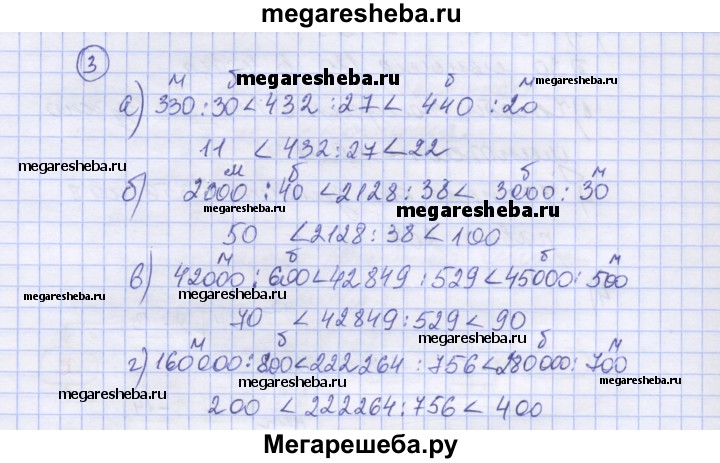 megaresheba.ru
3
м б б м
megaresheba.ru megaresheba.ru
а) 330:30<432:27< 440:20
11 <432:27<22
megaresheba.ru megaresheba.ru
м б б м
б) 2000:40<2128:38< 3000:30
megaresheba.ru megaresheba.ru
50 <2128:38<100
м б б м
в) 42000:600<42849:529<45000:500
megaresheba.ru megaresheba.ru megaresheba.ru
70 <42849:529<90
м б б м
г) 160000:800<222264:756<280000:700
megaresheba.ru megaresheba.ru megaresheba.ru
200 <222264:756< 400
Мегарешеба.ру